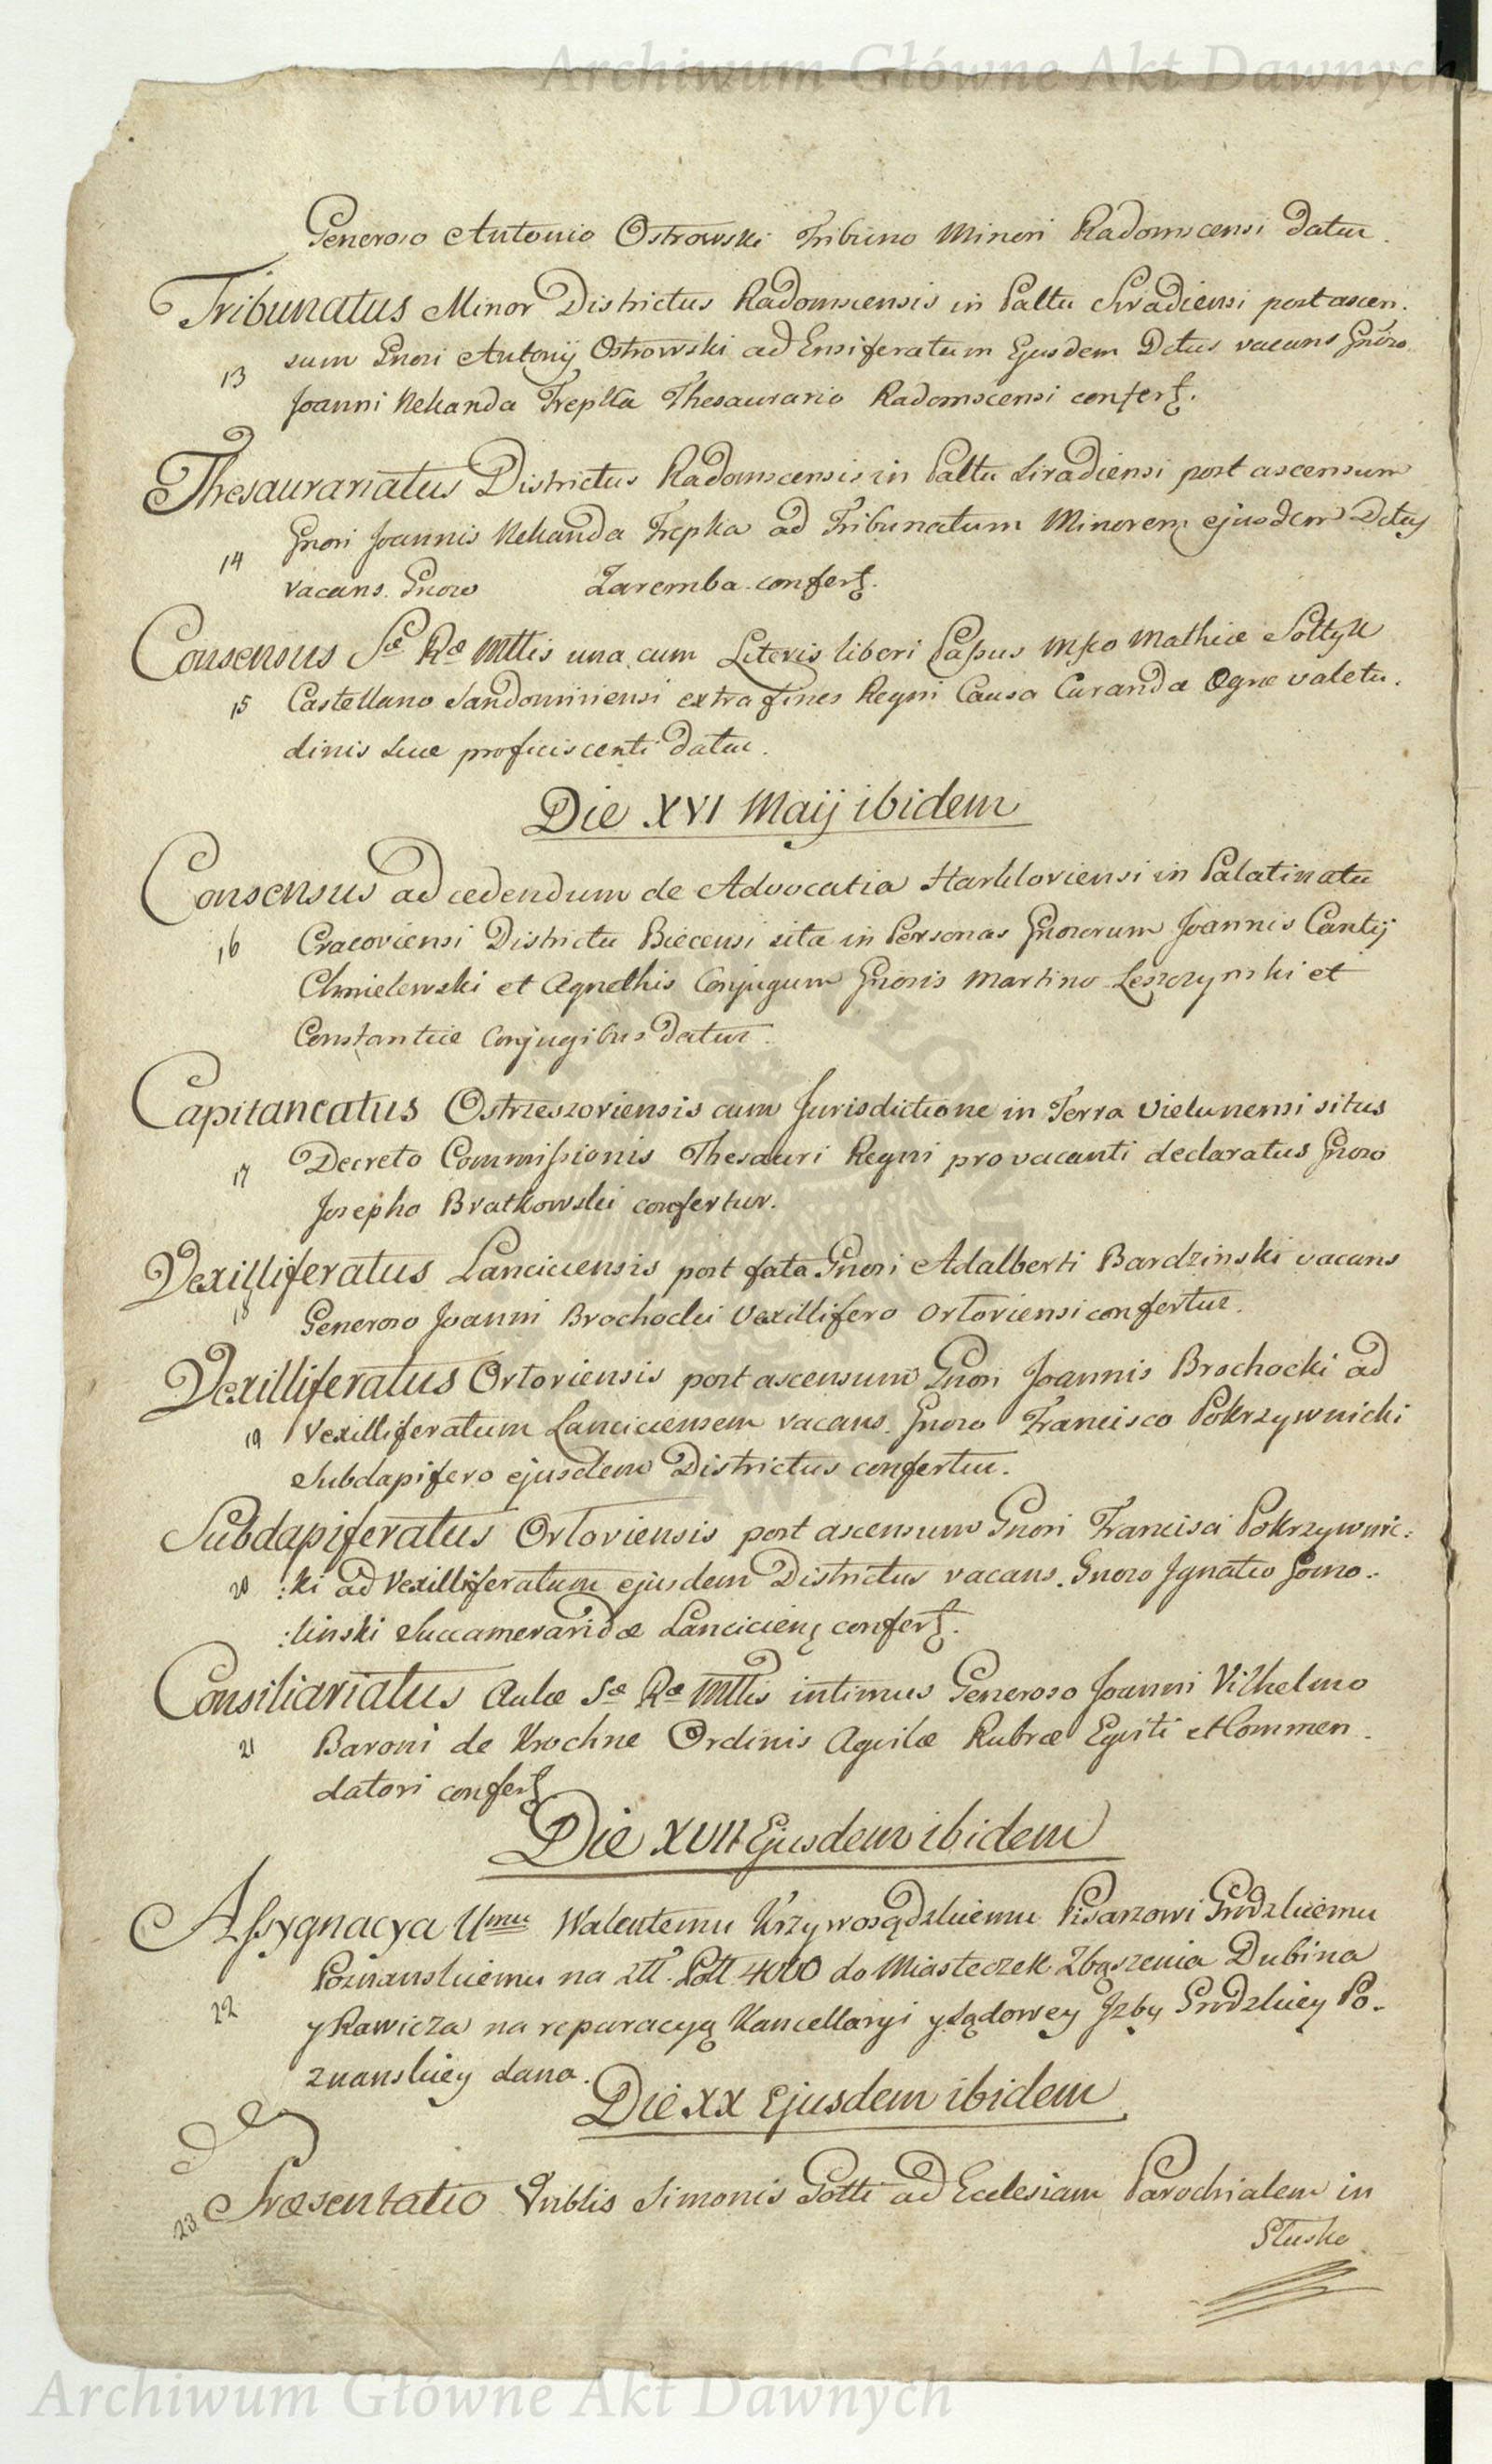 Archiwum Główne Akt Dawnych
Generoso Antonio Ostrowski Tribuno Minori Radomscensi datur.
Tribunatus Minor Districtus Radomscensis in Palttu Siradiensi post ascen.
13 sum Gnori Antonij Ostrowski ad Ensiferatum Ejusdem Dctus vacans Gnoro
Joanni Nekanda Trepka Thesaurario Radomscensi confert.
Thesaurariatus Districtus Radomscensis in Palttu Siradiensi post ascensum
14 Gnori Joannis Nekanda Trepka ad Tribunatum Minorem ejusdem Dctus
vacans. Gnoro Zaremba confert.
Consensus Sæ Ræ Mttis una cum Literis liberi Passus Mfco Mathiæ Sołtyk
15 Castellano Sandomiriensi extra fines Regni Causa Curandæ Ægræ valetu.
dinis suæ proficiscenti datur.
Die XVI Maij ibidem
Consensus ad cedendum de Advocatia Harkloviensi in Palatinatu
16 Cracoviensi Districtu Biecensi sita in Personas Gnororum Joannis Cantij
Chmielewski et Agnethis Conjugum Gnoris Martino Leszczynski et
Constantiæ Conjugibus datur.
Capitaneatus Ostrzeszoviensis cum Jurisdictione in Terra Vielunensi situs
17 Decreto Commissionis Thesauri Regni pro vacanti declaratus Gnoro
Josepho Bratkowski confertur.
Vexilliferatus Lanciciensis post fata Gnori Adalberti Bardzinski vacans
18 Generoso Joanni Brochocki Vexillifero Orloviensi confertur.
Vexilliferatus Orloviensis post ascensum Gnori Joannis Brochocki ad
19 Vexilliferatum Lanciciensem vacans. Gnoro Francisco Pokrzywnicki
Subdapifero ejusdem Districtus confertur.
Subdapiferatus Orloviensis post ascensum Gnori Francisci Pokrzywnic:
20 :ki ad Vexilliferatum ejusdem Districtus vacans. Gnoro Ignatio Gomo.:
:linski Succameraridæ Lancicien confert.
Consiliariatus Aulæ Sæ Ræ Mttis intimus Generoso Joanni Vilhelmo
21 Baroni de Krochne Ordinis Aquilæ Rubræ Equiti et Commen.
datori confert
Die XVII Ejusdem ibidem
Assygnacya Umu Walentemu Krzywosądzkiemu Pisarzowi Grodzkiemu
Poznanskiemu na Ztt. Pott 4000 do Miasteczek Zbąszenia Dubina
22 y Rawicza na reparacyą Kancellaryi y Sądowey Jzby Grodzkiey Po-
znanskiey dana.
Die XX Ejusdem ibidem
23 Præsentatio Vnblis Simonis Gotti ad Ecclesiam Parochialem in
Słusko
Archiwum Główne Akt Dawnych